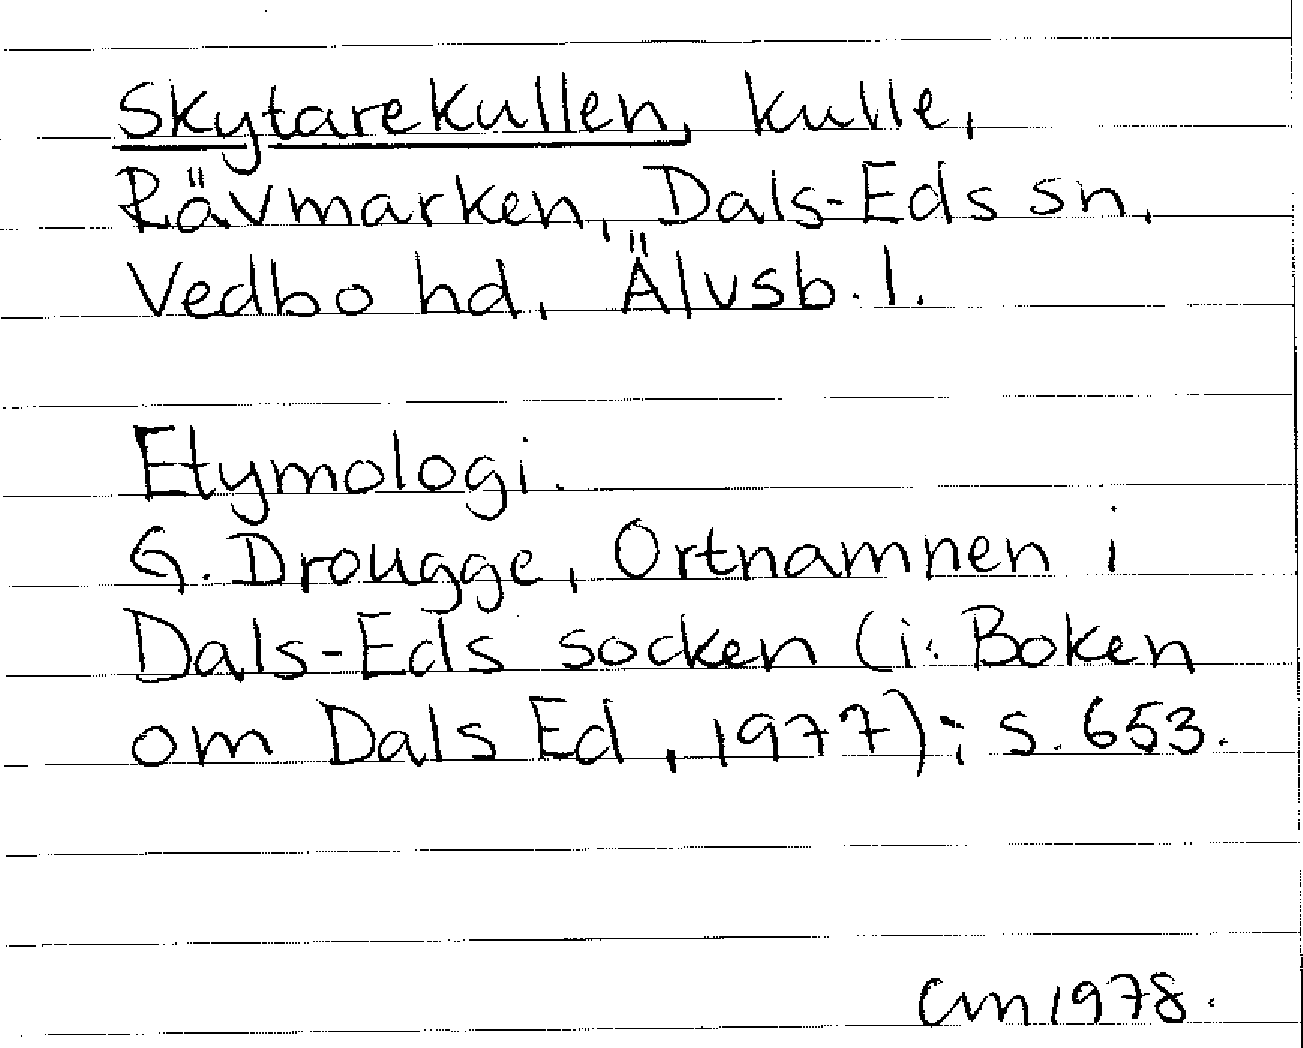 Skytarekullen, kulle,
Rävmarken, Dals-Eds sn,
Vedbo hd, Älvsb. l.
Etymologi.
G. Drougge, Ortnamnen i
Dals-Eds socken (i: Boken
om Dals Ed, 1977); s. 653.
CM 1978.